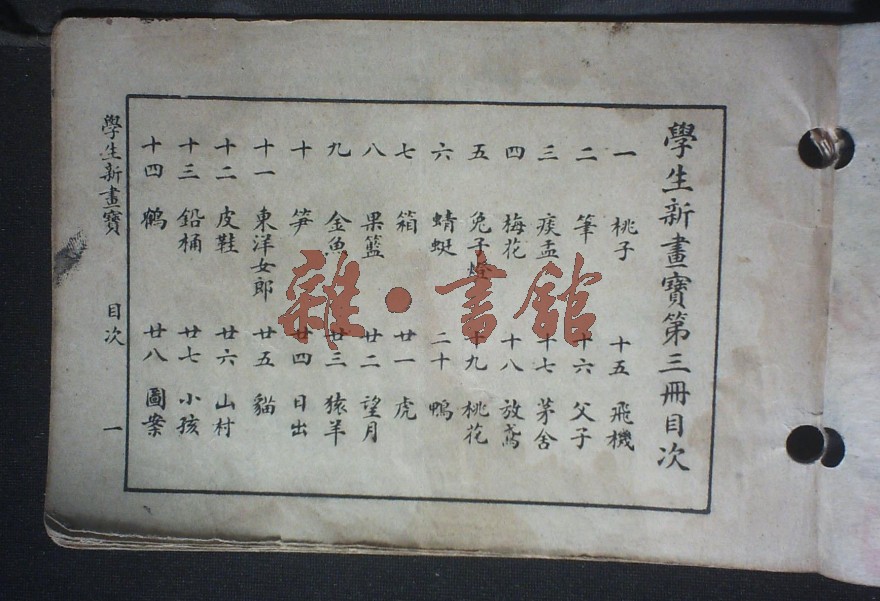 學生新畫寶第三冊目次
一 桃子 十五 飛機
二 筆 十六 父子
三 痰盂 十七 茅舍
四 梅花 十八 放鳶
五 兔子燈 十九 桃花
六 蜻蜓 二十 鴨
七 箱 廿一 虎
八 果籃 廿二 望月
九 金魚 廿三 猿羊
十 笋 廿四 日出
十一 東洋女郎 廿五 貓
十二 皮鞋 廿六 山村
十三 鉛桶 廿七 小孩
十四 鵪 廿八 圖案
學生新畫寶 目次 一
雜·書館